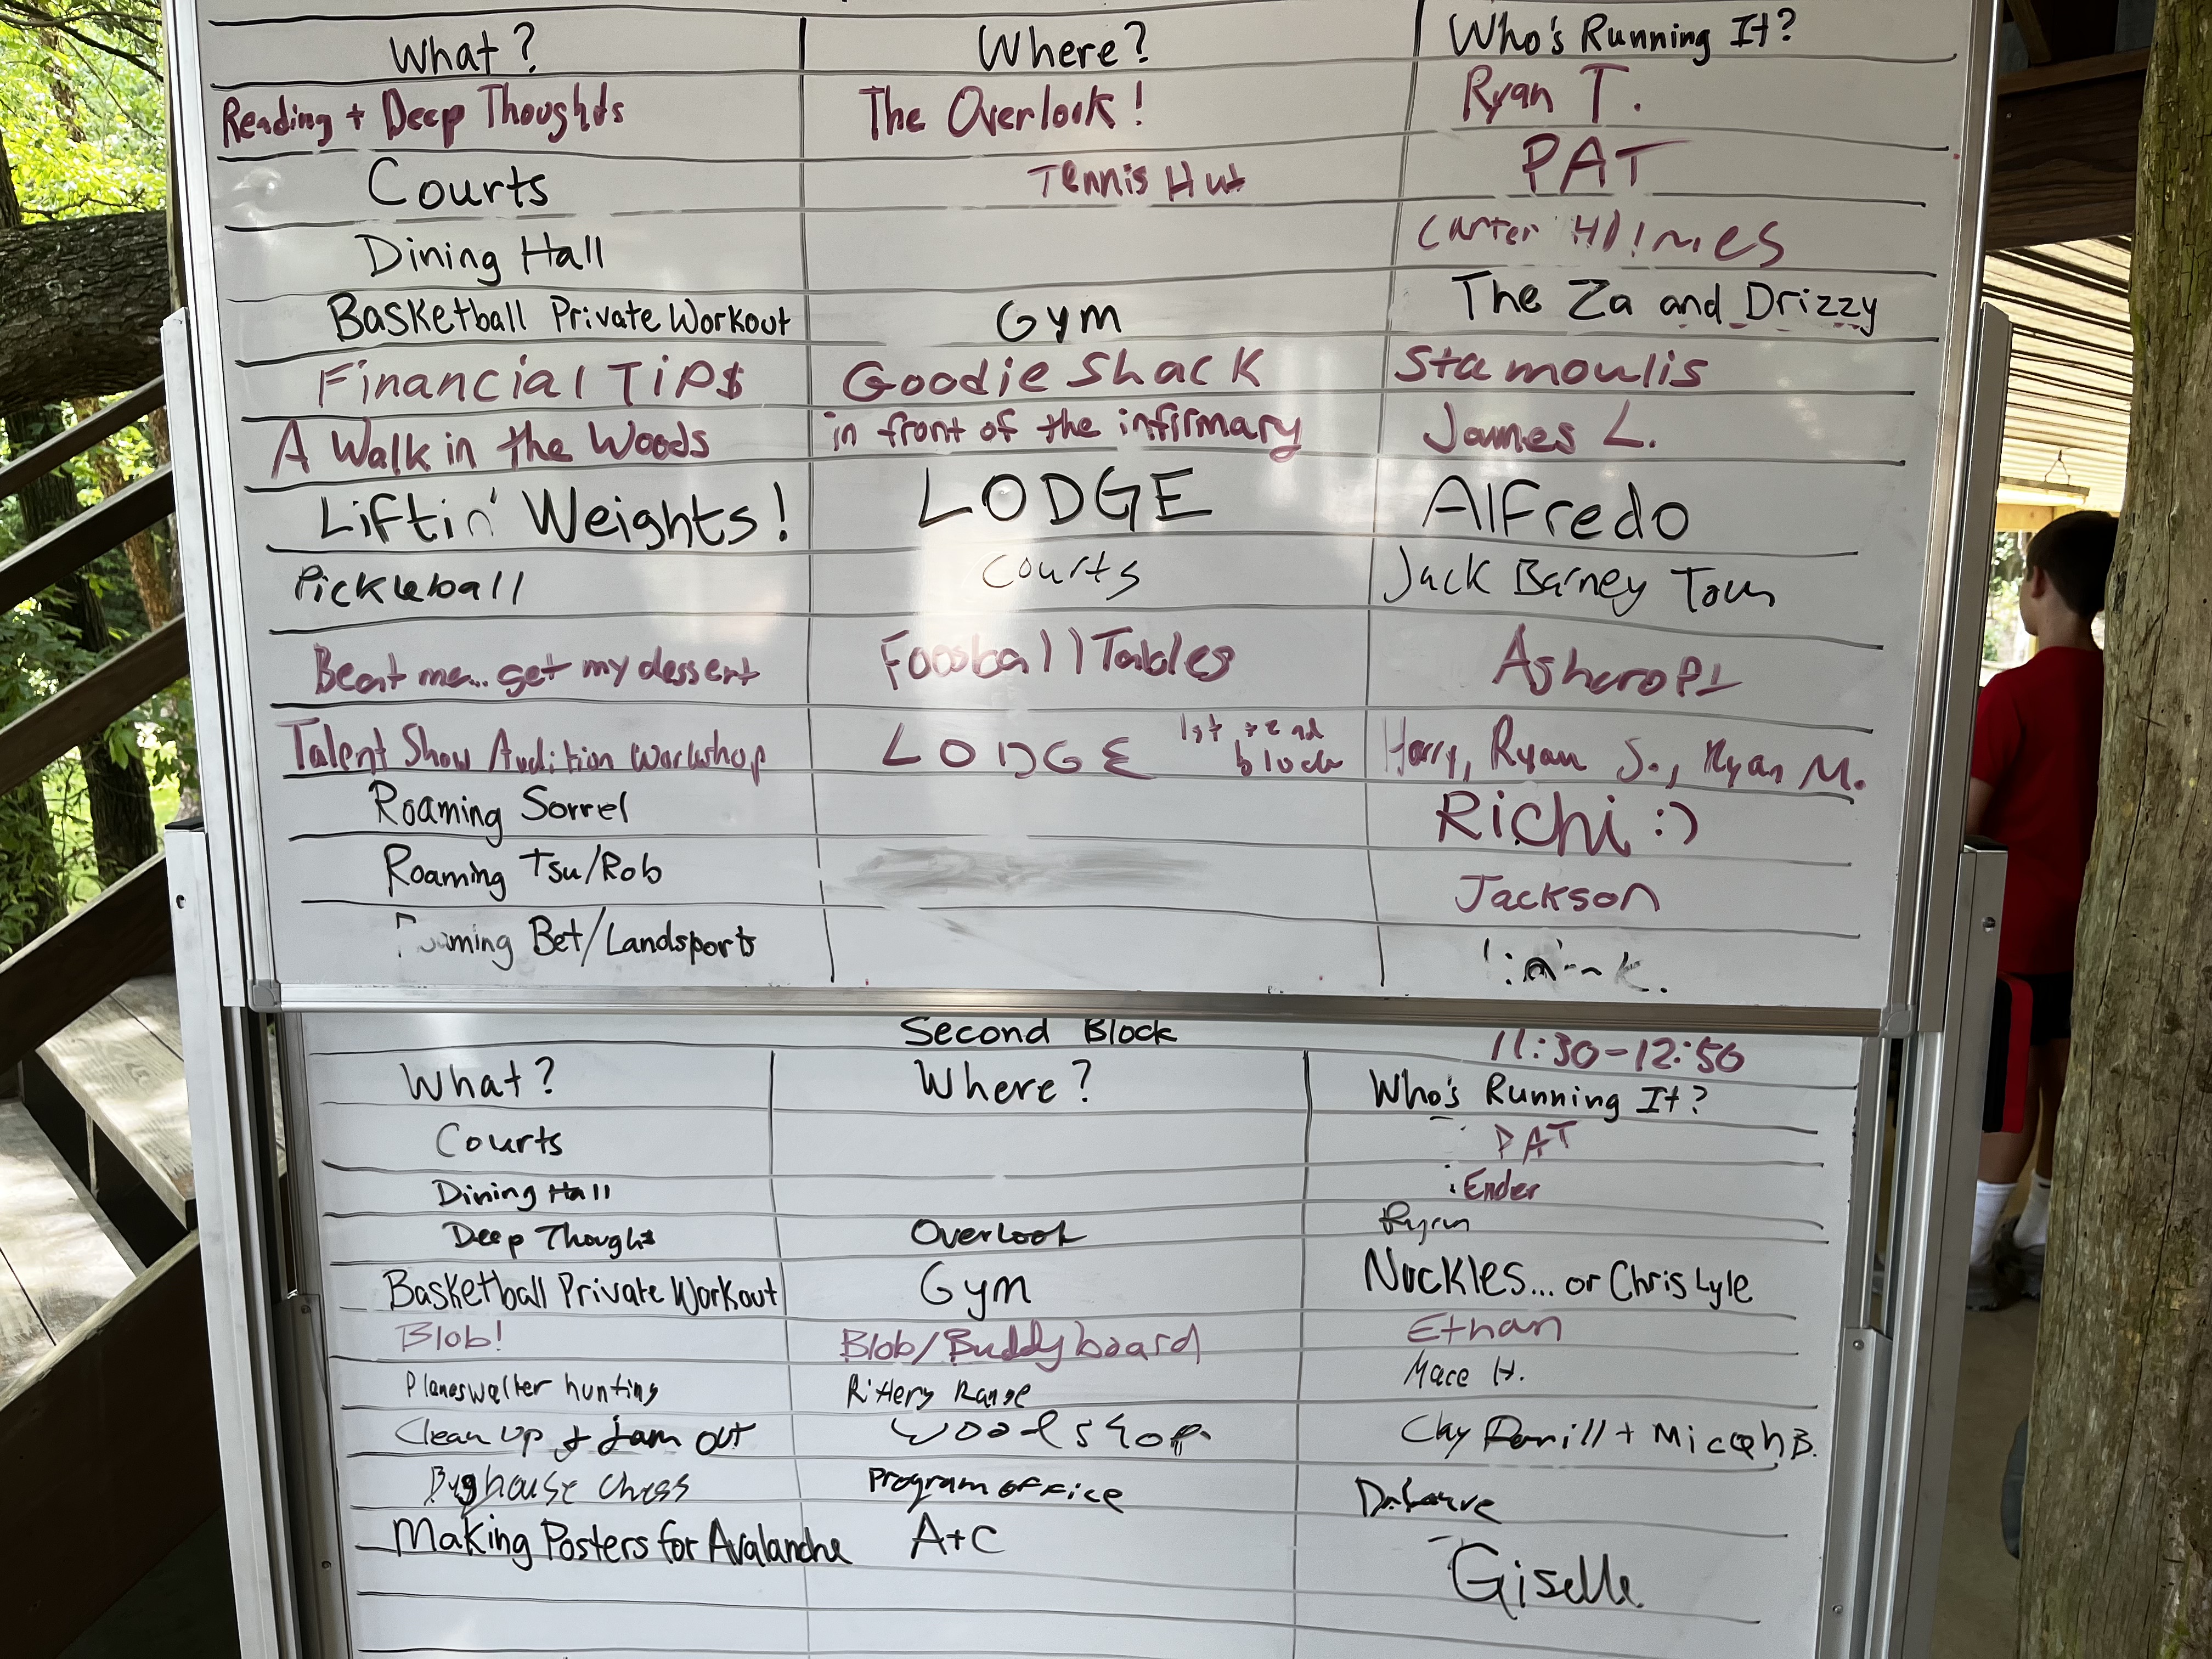 What? Where? Who's Running It?
Reading + Deep Thoughts The Overlook! Ryan T.
Courts Tennis Hut PAT
Dining Hall Carter
Basketball Private Workout Gym The Za and Drizzy
Financial TiP$ Goodie Shack Stamoulis
A Walk in the Woods in front of the infirmary James L.
Liftin' Weights! LODGE Alfredo
Pickleball Courts Jack Barney Tom
Beat me... get my dessert Foosball Tables
Talent Show Audition Workshop LODGE 1st block Harry, Ryan S., Ryan M.
Roaming Sorrel Richi :)
Roaming Tsu/Rob Jackson
Roaming Bet/Landsports
Second Block 11:30-12:50
What? Where? Who's Running It?
Courts PAT
Dining Hall Ender
Deep Thought Overlook Ryan
Basketball Private Workout Gym Nuckles... or Chris Lyle
Blob! Blob/Buddyboard Ethan
Planeswalker hunting Riflery Range Mace H.
Clean up + Jam out Woodshop Clay + Micah B.
Bughouse Chess Program office
Making Posters for Avalanche A+C Giselle